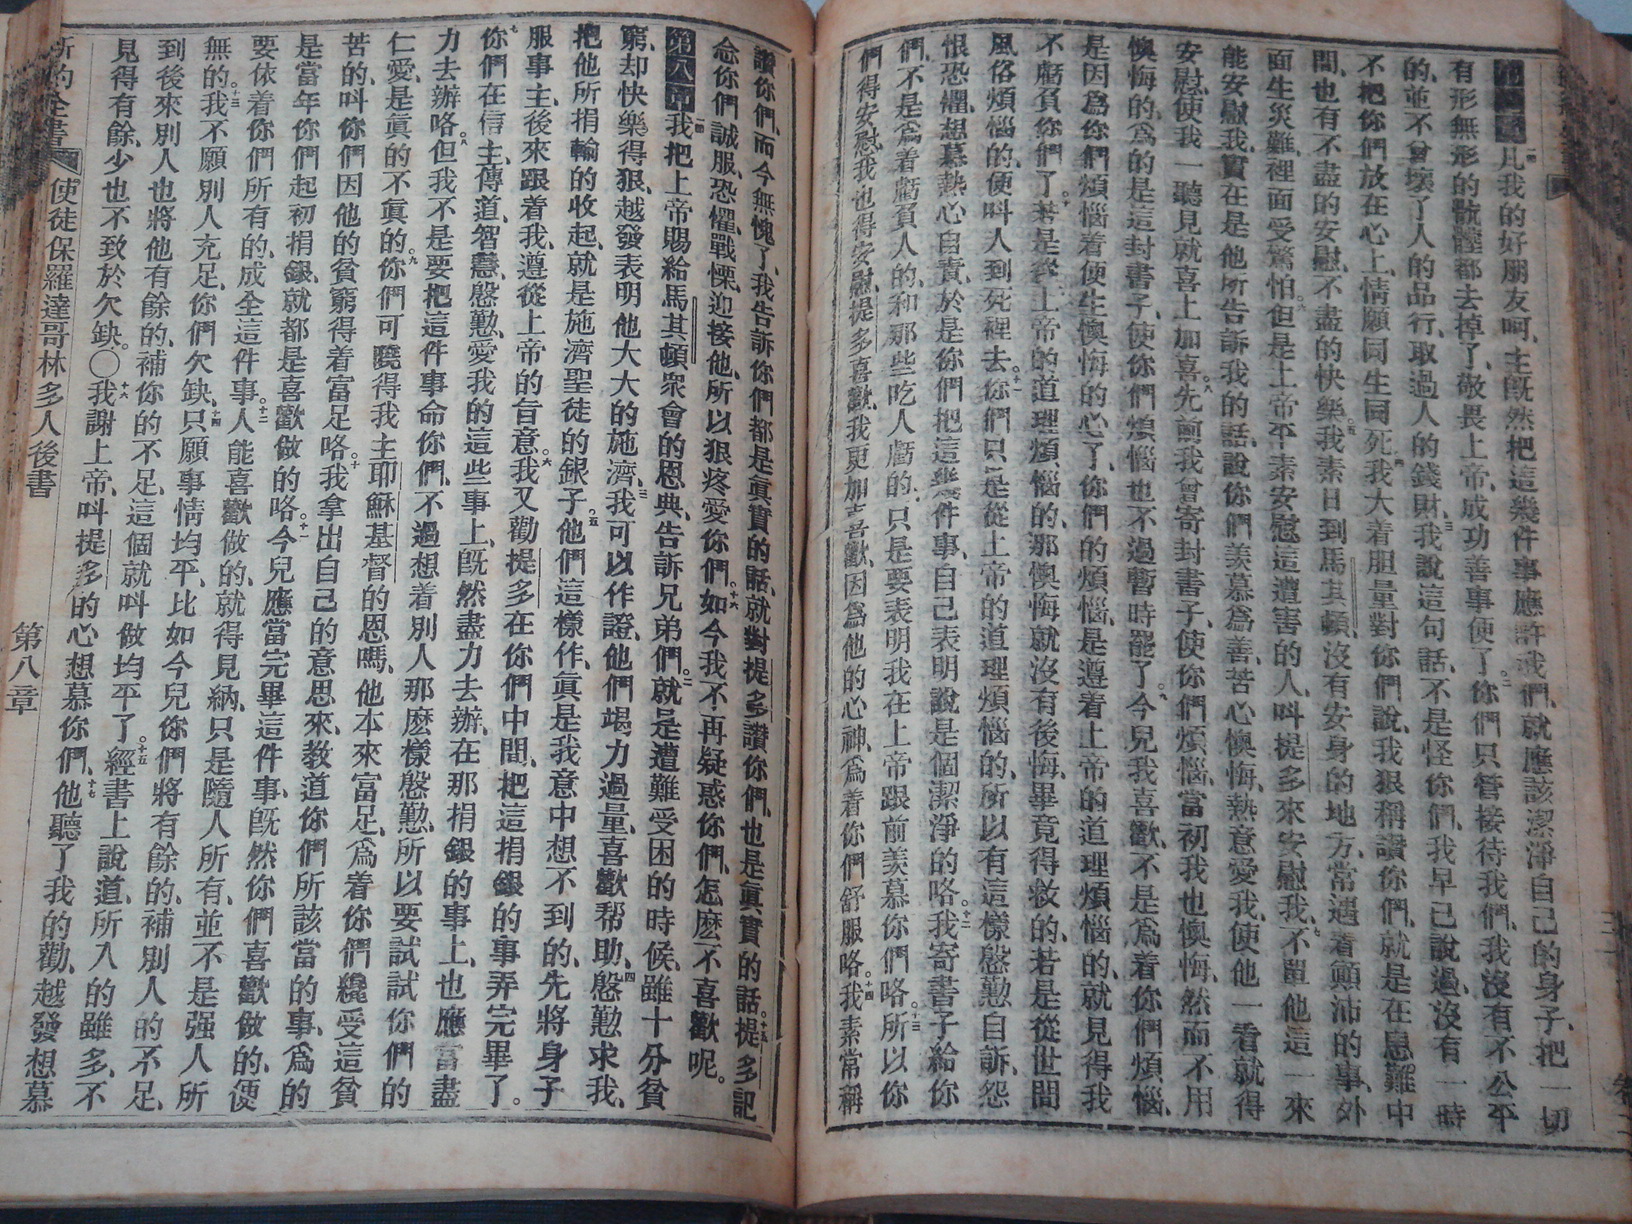 凡我的好朋友呵、主旣然把這幾件事應許我們、就應該潔淨自己的身子、把一切
有形無形的骯髒都去掉了、敬畏上帝、成功善事便了。二你們只管接待我們、我沒有不公平
的、並不曾壞了人的品行、取過人的錢財、三我說這句話、不是怪你們、我早已說過、沒有一時
不把你們放在心上、情願同生同死、四我大着胆量對你們說、我狠稱讚你們、就是在患難中
間、也有不盡的安慰、不盡的快樂。五我素日到馬其頓、沒有安身的地方、常遇着顚沛的事、外
面生災難、裡面受驚怕。六但是上帝平素安慰這遭害的人、叫提多來安慰我、七不單他這一來
能安慰我、實在是他所告訴我的話、說你們羨慕爲善、苦心懊悔、熱意愛我、使他一看就得
安慰、使我一聽見就喜上加喜。八先前我曾寄封書子、使你們煩惱、當初我也懊悔、然而不用
懊悔的、爲的是這封書子、使你們煩惱也不過暫時罷了。九今兒我喜歡、不是爲着你們煩惱、
是因爲你們煩惱着便生懊悔的心了、你們的煩惱、是遵着上帝的道理煩惱的、就見得我
不虧負你們了。十若是從上帝的道理煩惱的、那懊悔就沒有後悔、畢竟得救的、若是從世間
風俗煩惱的、便叫人到死裡去。十一你們只是從上帝的道理煩惱的、所以有這樣慇懃自訴、怨
恨恐懼、想慕熱心自責、於是你們把這幾件事、自己表明說是個潔淨的咯。十二我寄書子給你
們、不是爲着虧負人的、和那些吃人虧的、只是要表明我在上帝跟前羨慕你們咯。十三所以你
們得安慰、我也得安慰、提多喜歡、我更加喜歡、因爲他的心神、爲着你們舒服咯。十四我素常稱
讚你們、而今無愧了、我告訴你們都是眞實的話、就對提多讚你們、也是眞實的話。十五提多記
念你們誠服、恐懼戰慄、迎接他、所以狠疼愛你們。十六如今我不再疑惑你們、怎麽不喜歡呢。
第八章 一節我把上帝賜給馬其頓衆會的恩典、告訴兄弟們。二就是遭難受困的時候、雖十分貧
窮、却快樂得狠、越發表明他大大的施濟、三我可以作證、他們竭力過量、喜歡帮助、四慇懃求我、
把他所捐輸的收起、就是施濟聖徒的銀子。五他們這樣作、眞是我意中想不到的、先將身子
服事主、後來跟着我、遵從上帝的旨意。六我又勸提多在你們中間、把這捐銀的事弄完畢了。
七你們在信主、傳道、智慧、慇懃、愛我的這些事上、旣然盡力去辦、在那捐銀的事上、也應當盡
力去辦咯。八但我不是要把這件事命你們、不過想着別人那麽樣慇懃、所以要試試你們的
仁愛、是眞的不眞的。九你們可曉得我主耶穌基督的恩嗎、他本來富足、爲着你們纔受這貧
苦的、叫你們因他的貧窮得着富足咯。十我拿出自己的意思來、教道你們所該當的事、爲的
是當年你們起初捐銀、就都是喜歡做的咯。十一今兒應當完畢這件事、旣然你們喜歡做的、便
要依着你們所有的、成全這件事。十二人能喜歡做的、就得見納、只是隨人所有、並不是强人所
無的。十三我不願別人充足、你們欠缺、十四只願事情均平、比如今兒你們將有餘的、補別人的不足、
到後來別人也將他有餘的、補你的不足、這個就叫做均平了。十五經書上說道、所入的雖多、不
見得有餘、少也不致於欠缺。〇十六我謝上帝、叫提多的心想慕你們、十七他聽了我的勸、越發想慕
新約全書 使徒保羅達哥林多人後書 第八章